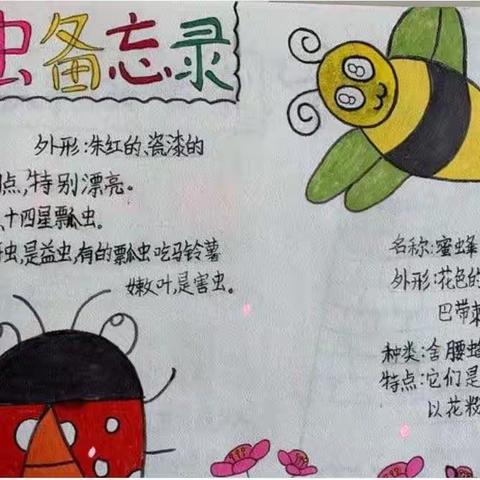 虫备忘录
外形:朱红的、瓷漆的
点,特别漂亮。
十四星瓢虫。
虫,是益虫,有的瓢虫吃马铃薯
嫩叶,是害虫。
名称:蜜蜂
外形:花色的
巴带刺
种类:舍腰蜂
特点:它们是
以花粉